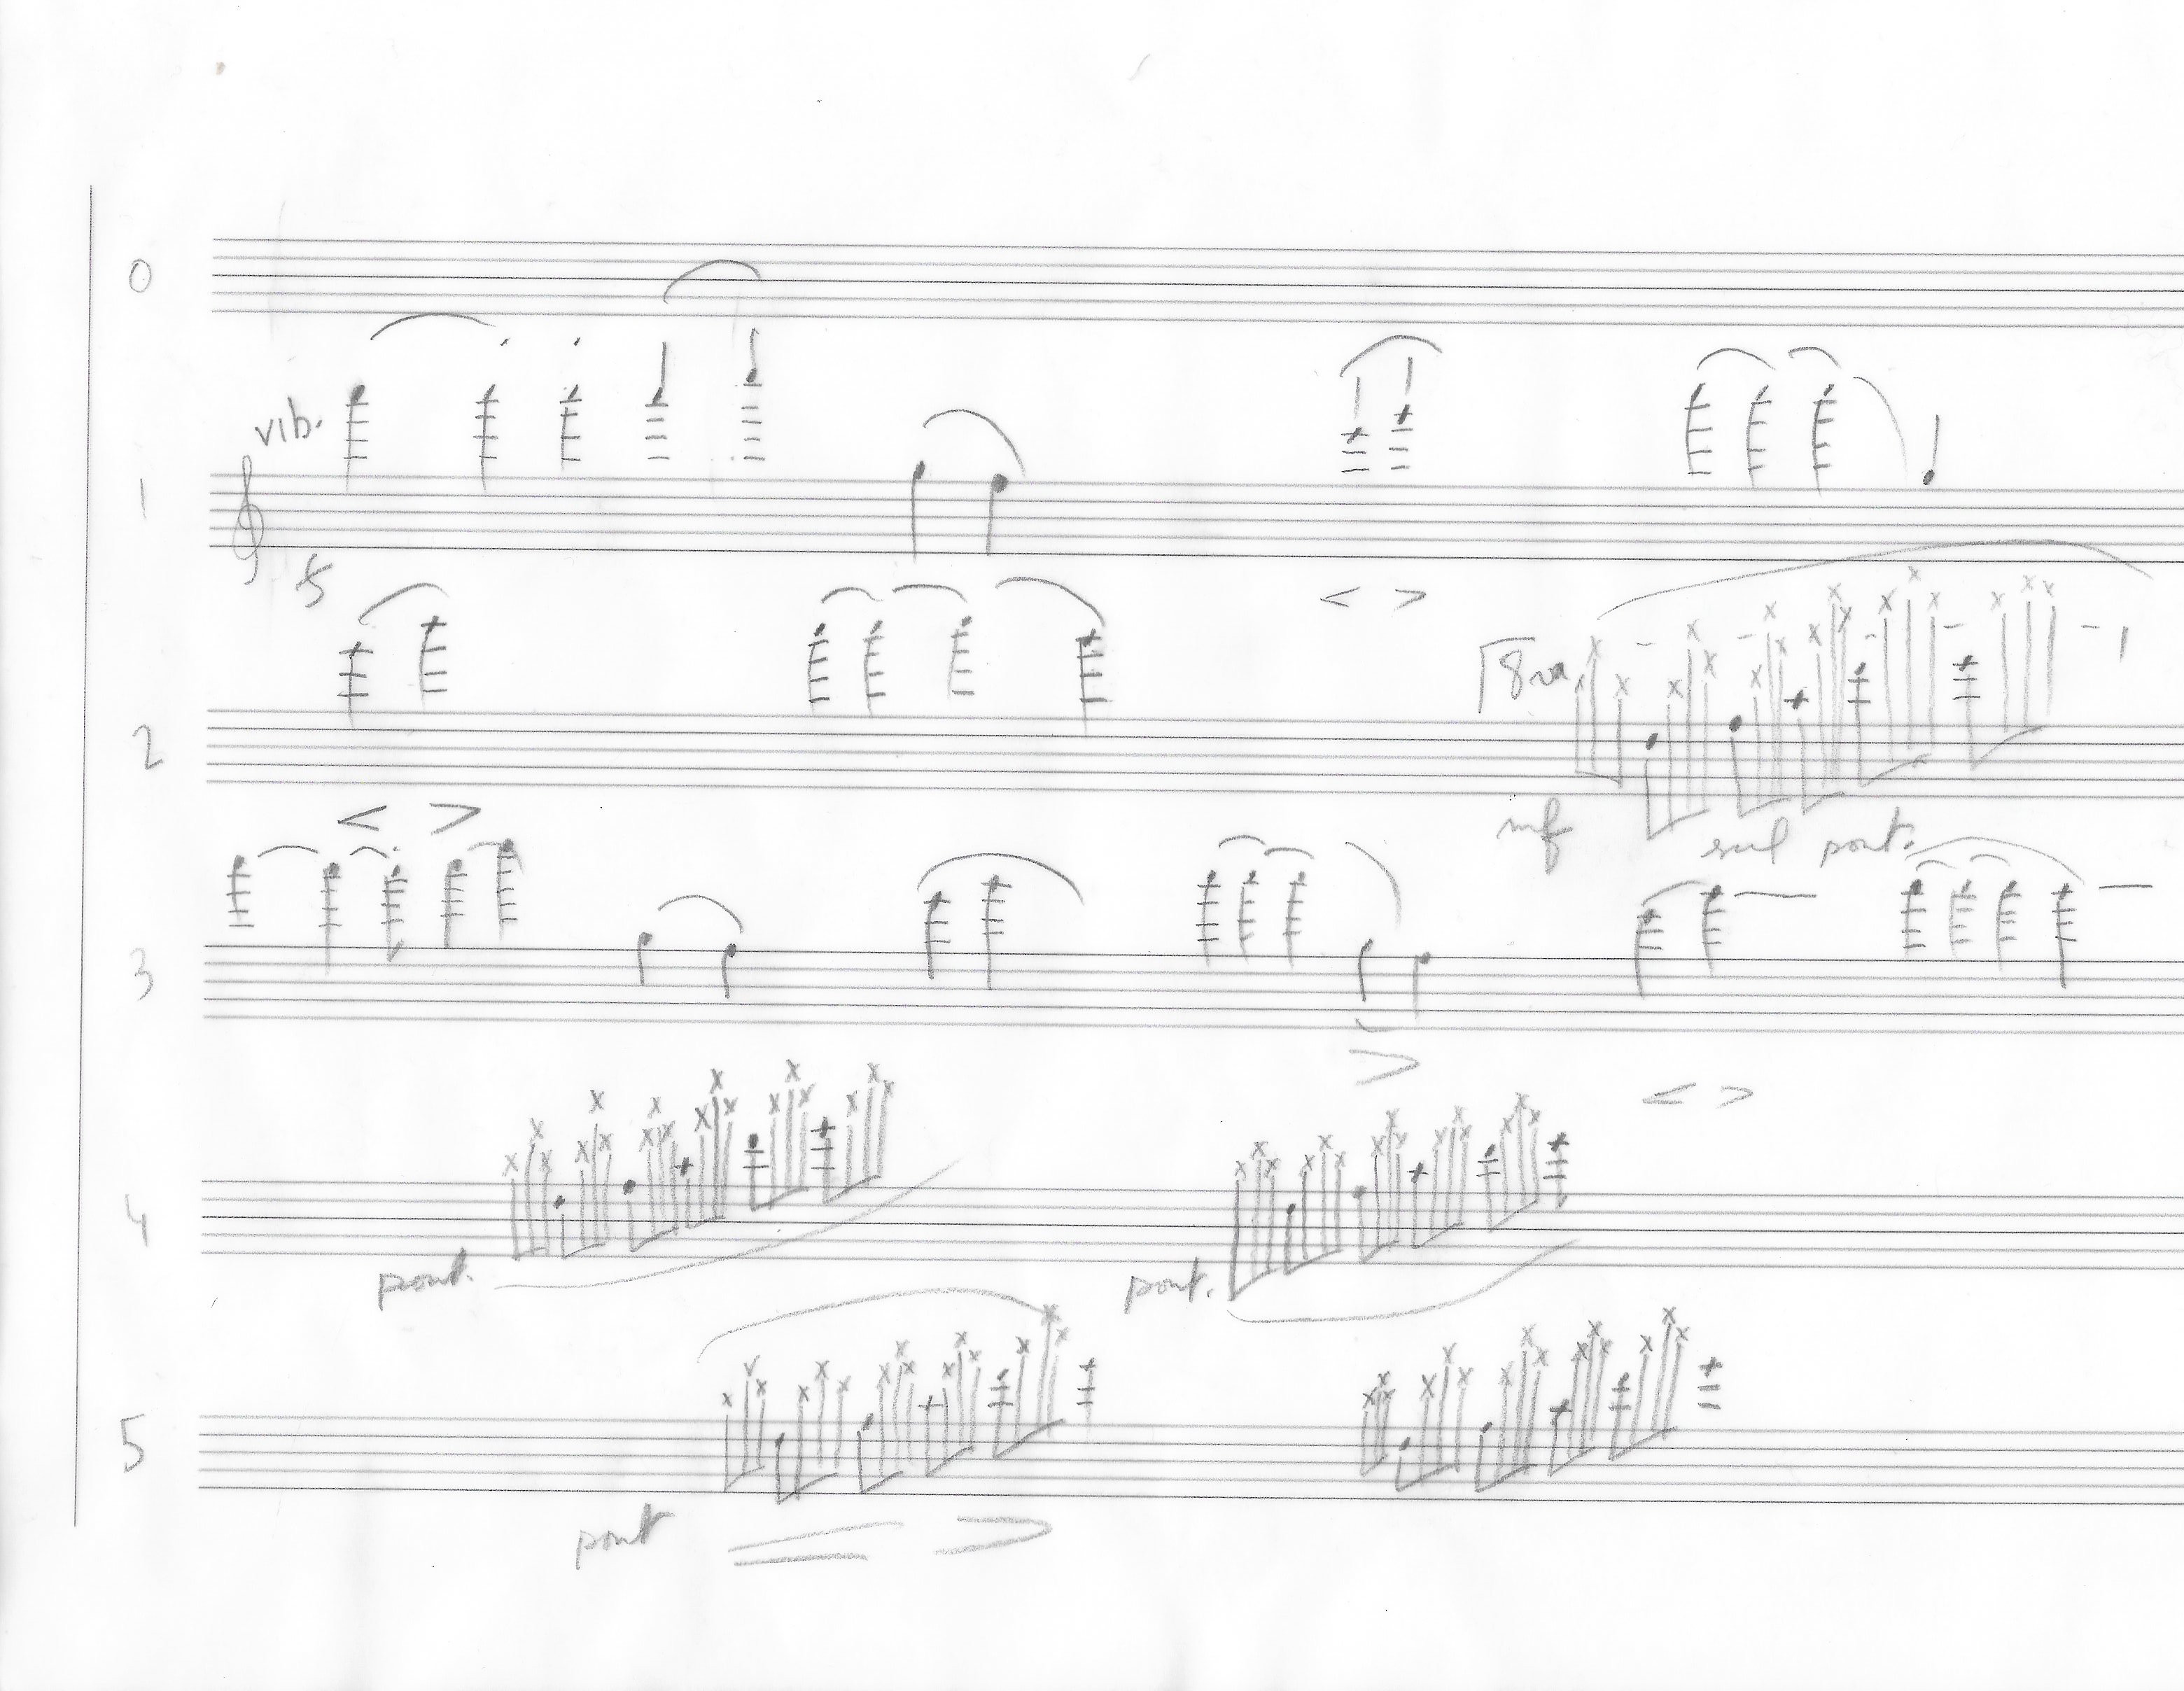 0
vib.
1
5
8va
2
mf
sul pont.
3
4
pont.
pont.
5
pont